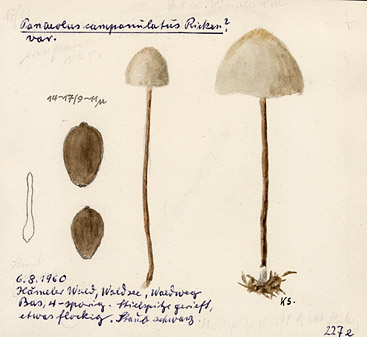 Panaeolus campanulatus Ricken?
var.
14-17/9-11µ
6.8.1960
Hämeler Wald, Waldsee, Waldweg
Bas, 4-sporig. Stielspitze gerieft,
etwas flockig. Staub schwarz.
KS.
2272